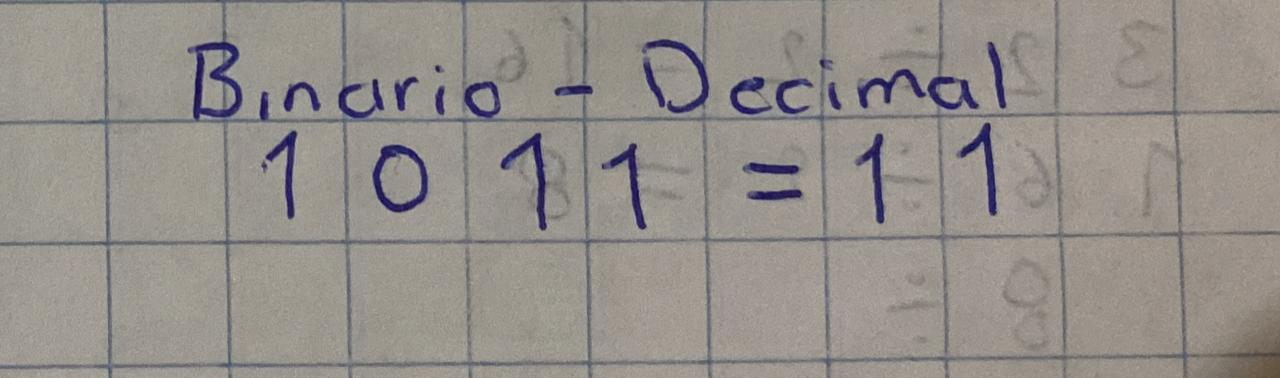 Binario - Decimal
1 0 1 1 = 1 1